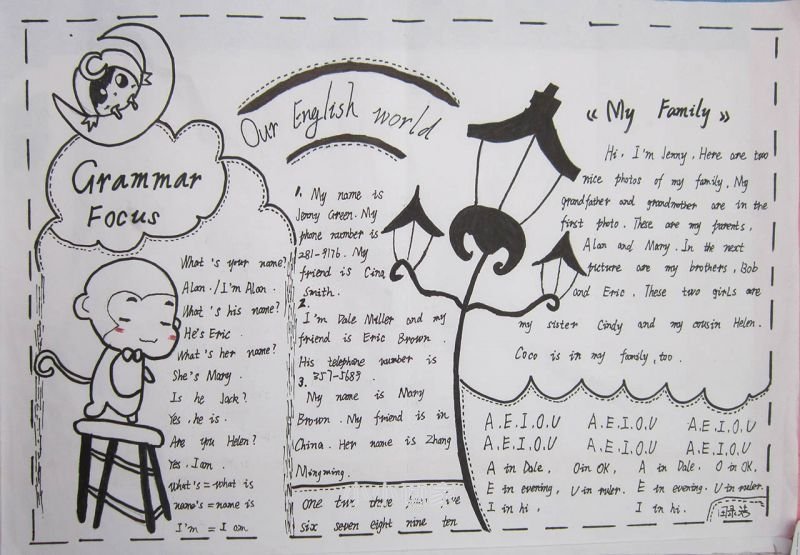 Our English world
Grammar
Focus
What's your name?
Alan. / I'm Alan.
What's his name?
He's Eric.
What's her name?
She's Mary.
Is he Jack?
Yes, he is.
Are you Helen?
Yes, I am.
what's = what is
name's = name is
I'm = I am
1. My name is
Jenny Green. My
phone number is
281-9176. My
friend is Gina
Smith.
2.
I'm Dale Miller and my
friend is Eric Brown.
His telephone number is
357-5689.
3.
My name is Mary
Brown. My friend is in
China. Her name is Zhang
Mingming.
one two three five
six seven eight nine ten
《My Family》
Hi, I'm Jenny. Here are two
nice photos of my family. My
grandfather and grandmother are in the
first photo. These are my parents,
Alan and Mary. In the next
picture are my brothers, Bob
and Eric. These two girls are
my sister Cindy and my cousin Helen.
Coco is in my family, too.
A.E.I.O.U A.E.I.O.U A.E.I.O.U
A.E.I.O.U A.E.I.O.U A.E.I.O.U
A in Dale, O in OK, A in Dale. O in OK,
E in evening, U in ruler. E in evening. U in ruler.
I in hi, I in hi.